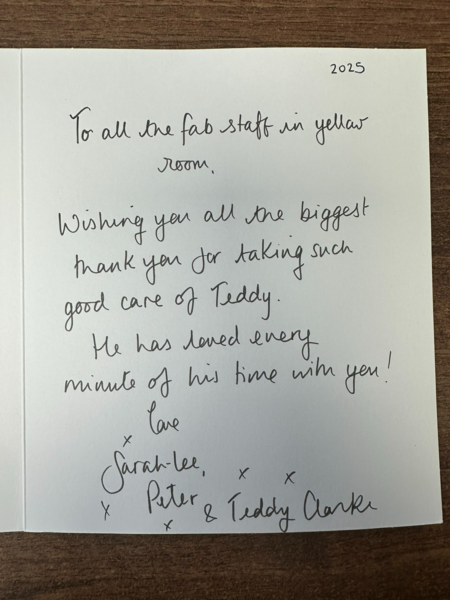 2025
To all the fab staff in yellow
room.
Wishing you all the biggest
thank you for taking such
good care of Teddy.
He has loved every
minute of his time with you!
love
x
Sarah-Lee,
x x
x Peter & Teddy Clarke
x